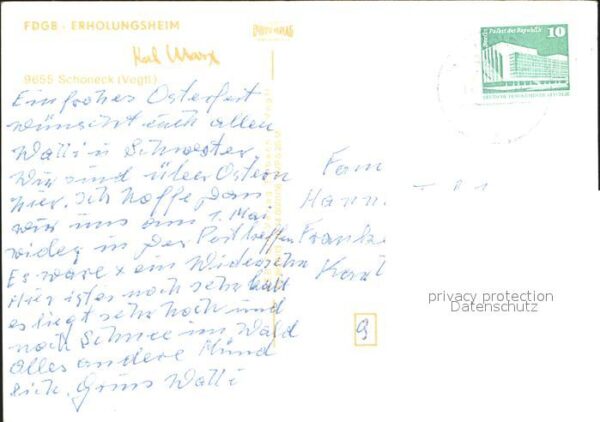 FDGB - ERHOLUNGSHEIM
Karl Marx
9655 Schöneck (Vogtl.)
Berlin, Palast der Republik
10
Ein frohes Osterfest
wünscht euch allen
Walli u Schwester,
Wir sind über Ostern
hier. Ich hoffe dan
wir uns am 1. Mai
wider in der treffen
Es wäre x ein Widersehn
Hier ist es noch sehr kalt
es liegt sehr hoch und
noch Schnee im Wald
alles andere Münd
lich. Gruss Walli
Fam
Hann
Franke
privacy protection
Datenschutz